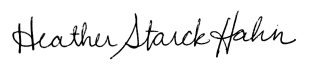 Heather Starck Hahn